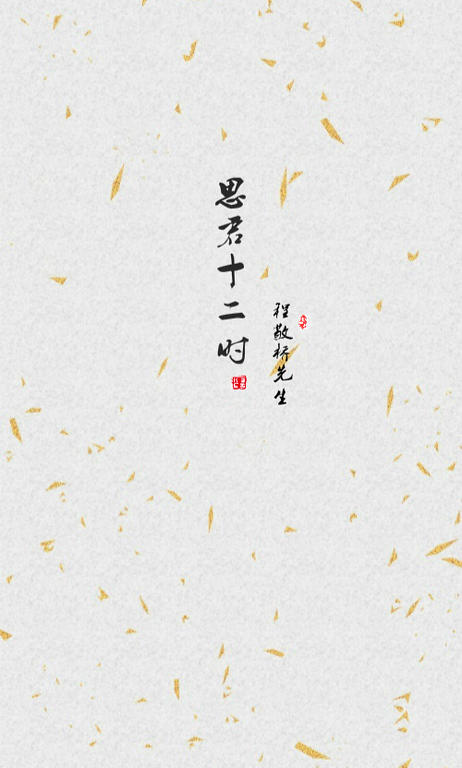 思君十二时
程敬桥先生